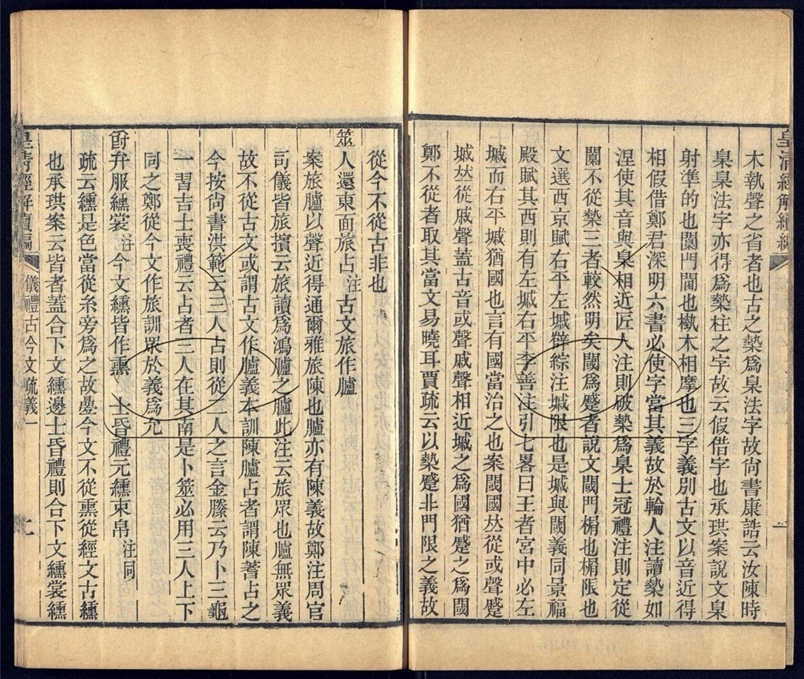 皇清經解續編
木執聲之省者也古之槷爲臬法字故尙書康誥云汝陳時
臬臬法字亦得爲槷柱之字故云假借字也承珙案說文臬
射準的也闑門閫也槸木相摩也三字義別古文以音近得
相假借鄭君深明六書必使字當其義故於輪人注讀槷如
涅使其音與臬相近匠人注則破槷爲臬士冠禮注則定從
闑不從槷三者較然明矣閾爲蹙者說文閾門榍也榍限也
文選西京賦右平左墄薛綜注墄限也是墄與閾義同景福
殿賦其西則有左墄右平李善注引七畧曰王者宮中必左
墄而右平墄猶國也言有國當治之也案閾國𠀤從或聲蹙
墄𠀤從戚聲蓋古音或聲戚聲相近墄之爲國猶蹙之爲閾
鄭不從者取其當文易曉耳賈疏云以槷蹙非門限之義故
從今不從古非也
筮人還東面旅占注古文旅作臚
案旅臚以聲近得通爾雅旅陳也臚亦有陳義故鄭注周官
司儀皆旅擯云旅讀爲鴻臚之臚此注云旅眾也臚無眾義
故不從古文或謂古文作臚義本訓陳臚占者謂陳蓍占之
今按尙書洪範云三人占則從二人之言金縢云乃卜三龜
一習吉士喪禮云占者三人在其南是卜筮必用三人上下
同之鄭從今文作旅訓眾於義爲允
爵弁服纁裳注今文纁皆作熏 士昏禮元纁束帛注同
疏云纁是色當從糸旁爲之故疊今文不從熏從經文古纁
也承珙案云皆者蓋合下文纁邊士昏禮則合下文纁裳纁
皇清經解續編
儀禮古今文疏義一
九